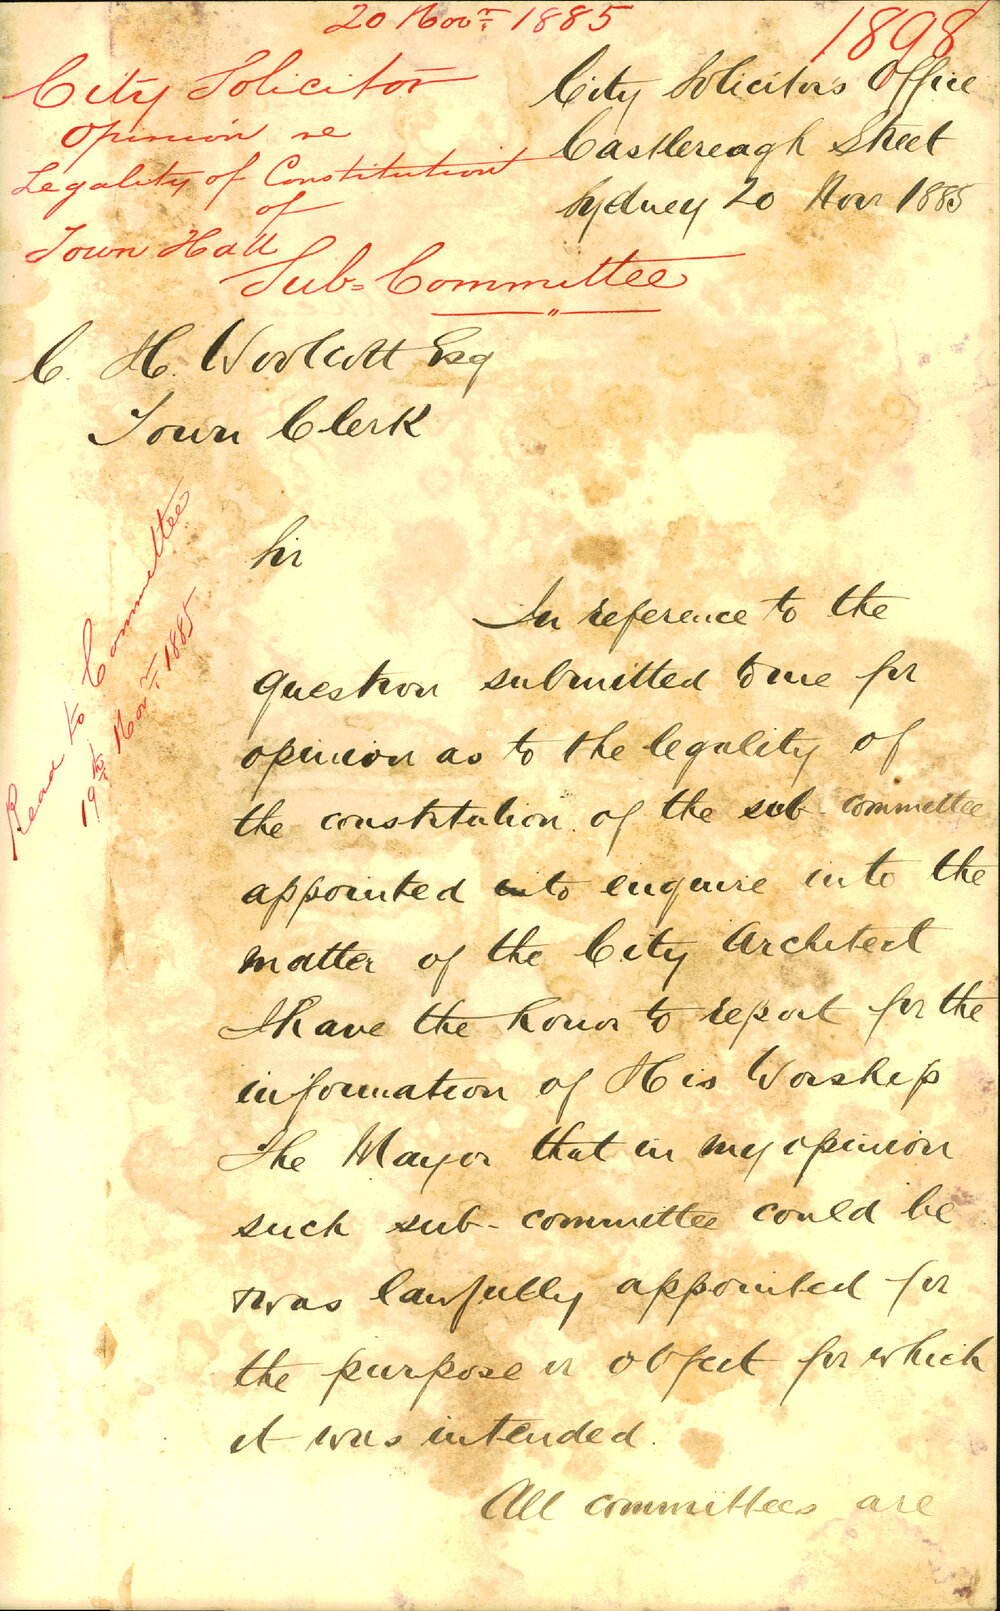 20 Novr. 1885
1898
City Solicitor
Opinion re
Legality of Constitution
of
Town Hall
Sub-Committee
City Solicitor's Office
Castlereagh Street
Sydney 20 Novr 1885
C. H. Woolcott Esq
Town Clerk
Read to Committee
19th Novr. 1885
Sir
In reference to the
question submitted to me for
opinion as to the legality of
the constitution of the sub-committee
appointed to enquire into the
matter of the City Architect
I have the honor to report for the
information of His Worship
The Mayor that in my opinion
such sub-committee could be
& was lawfully appointed for
the purpose or object for which
it was intended.
All committees are